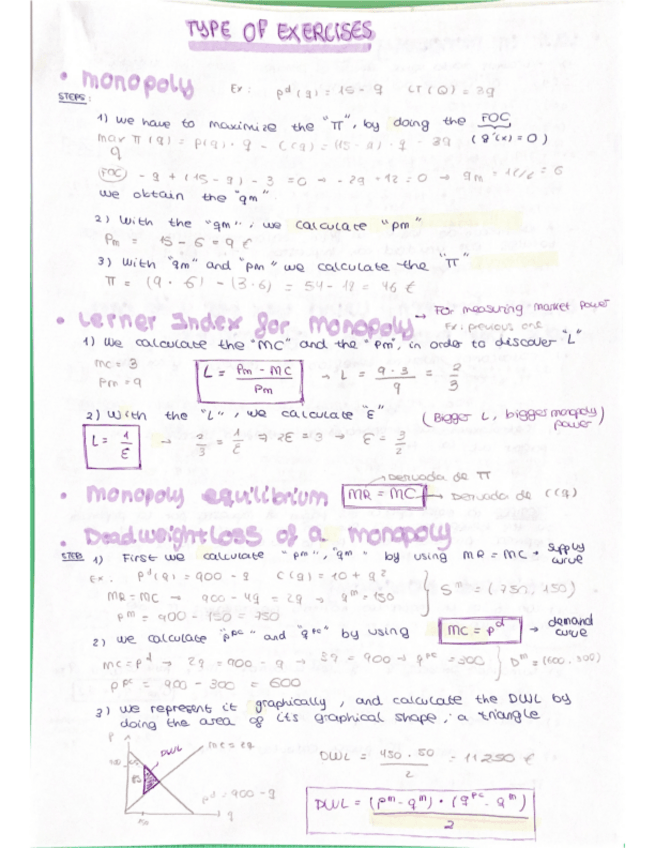 TYPE OF EXERCISES
• monopoly Ex: pd(q) = 15 - q CT(Q) = 3q
STEPS:
1) we have to maximize the "π", by doing the FOC
max π(q) = p(q) · q - C(q) = (15 - q) · q - 3q (g'(x) = 0)
q
FOC - q + (15 - q) - 3 = 0 → - 2q + 12 = 0 → qm = = 6
we obtain the "qm"
2) With the "qm", we calculate "pm"
Pm = 15 - 6 = 9 €
3) With "qm" and "pm" we calculate the "π"
π = (9 · 6) - (3 · 6) = 54 - 18 = 46 €
• Lerner Index for monopoly → For measuring market power
Ex: previous one
1) We calculate the "MC" and the "Pm", in order to discover "L"
mc = 3
pm = 9
L = Pm - MC / Pm → L = 9 - 3 / 9 = 2/3
2) With the "L", we calculate "E" (Bigger L, bigger monopoly power)
L = 1/E → 2/3 = 1/E → 2E = 3 → E = 3/2
→ Derivada de π
• monopoly equilibrium MR = MC → Derivada de C(q)
• Deadweight loss of a monopoly
STEP: 1) First we calculate "pm", "qm" by using MR = MC → supply curve
Ex. pd(q) = 900 - q C(q) = 10 + q²
MR = MC → 900 - 4q = 2q → qm = 150 } Sm = (750, 150)
pm = 900 - 150 = 750
2) we calculate "ppc" and "qpc" by using MC = pd → demand curve
mc = pd → 2q = 900 - q → 3q = 900 → qpc = 300 } Dm = (600, 300)
ppc = 900 - 300 = 600
3) we represent it graphically, and calculate the DWL by
doing the area of its graphical shape, a triangle
P DWL mc = 2q
pd = 900 - q
150 q
DWL = 450 · 50 / 2 = 11250 €
DWL = (pm - qm) · (qpc - qm) / 2